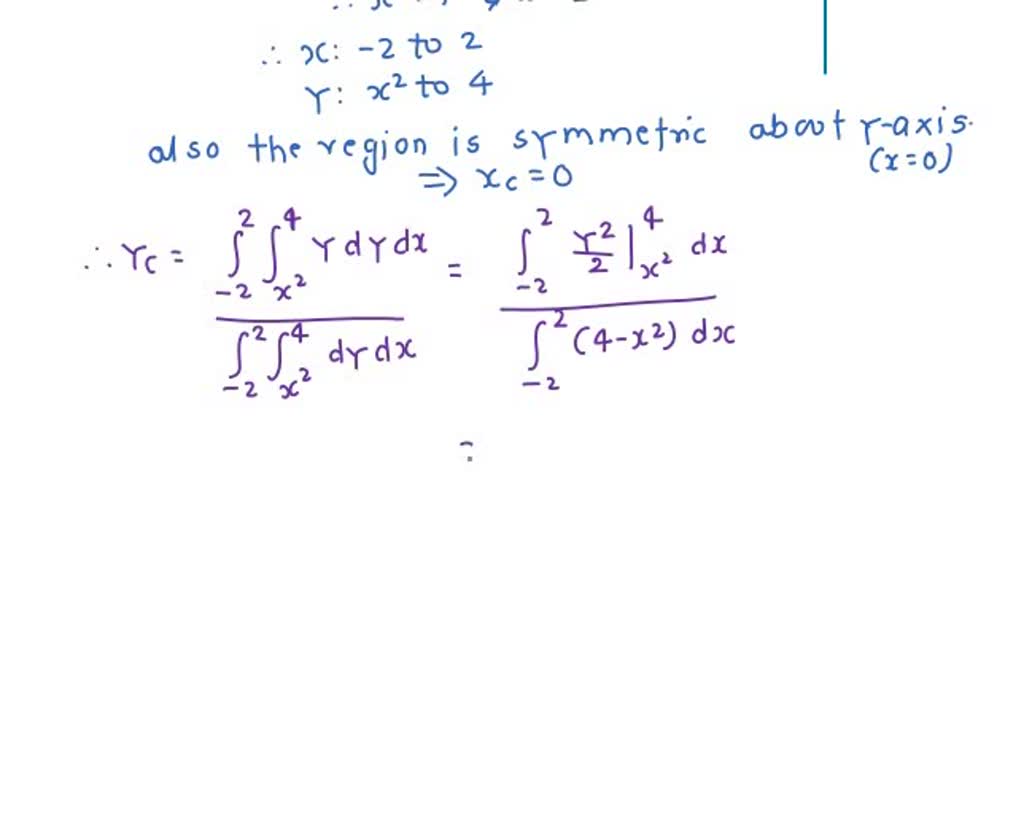 ∴ x: -2 to 2
Y: x² to 4
also the region is symmetric about Y-axis.
(x=0)
⇒ x_c = 0
∴ Y_c = ∫_{-2}^{2} ∫_{x²}^{4} Y dY dx / ∫_{-2}^{2} ∫_{x²}^{4} dY dx = ∫_{-2}^{2} Y²/2 |_{x²}^{4} dx / ∫_{-2}^{2} (4-x²) dx
=